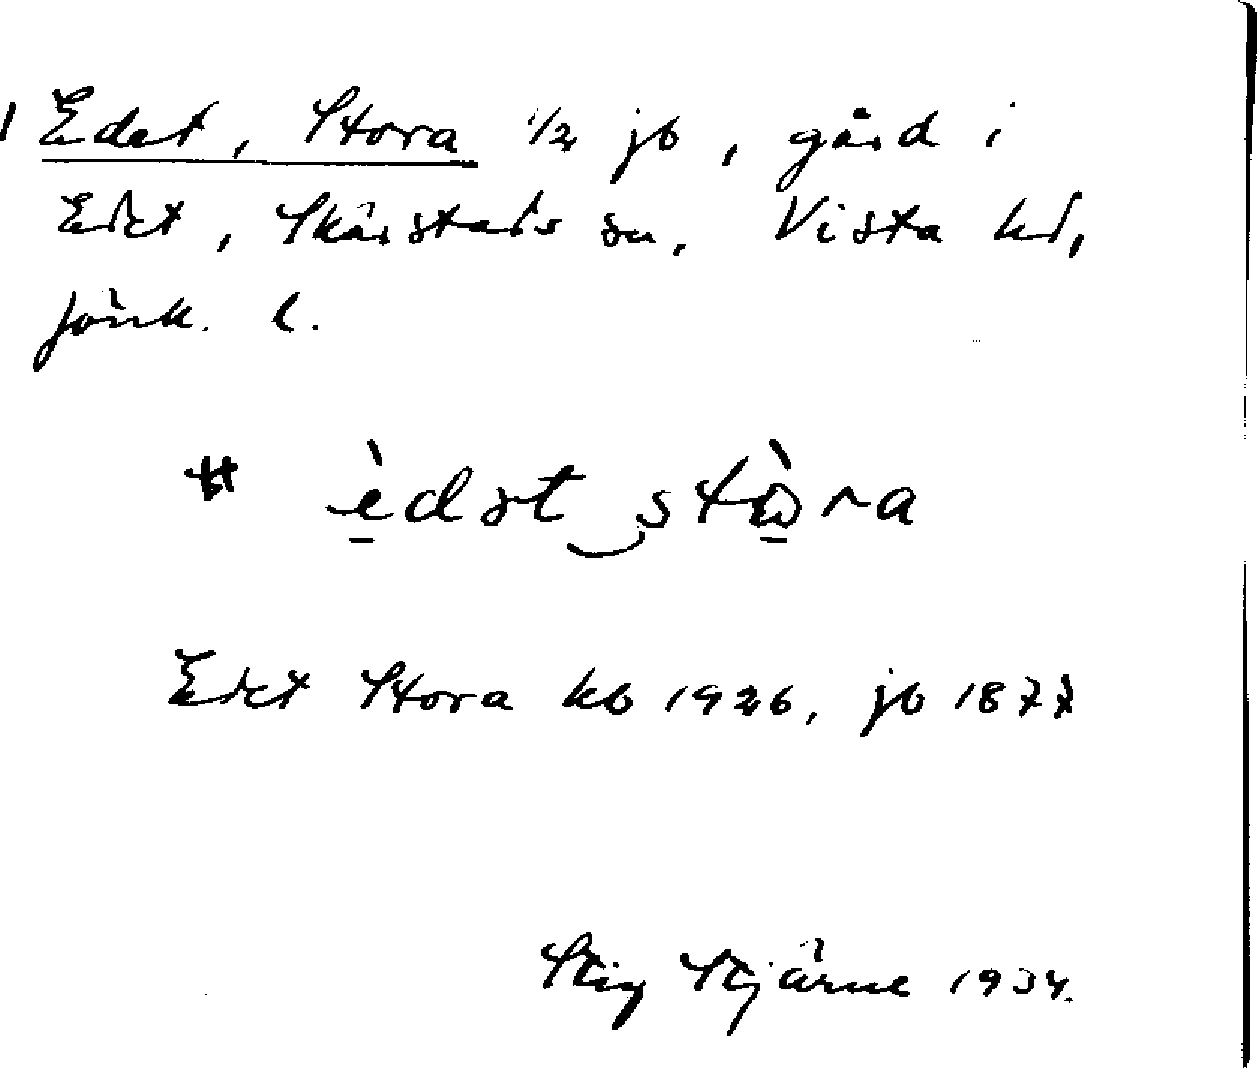 Edet, Stora 1/2 jb, gård i
Edet, Skärstads sn, Vista hd,
Jönk. l.
# èdət‿stòra
Edet Stora kb 1926, jb 1877
Stig Stjärne 1934.